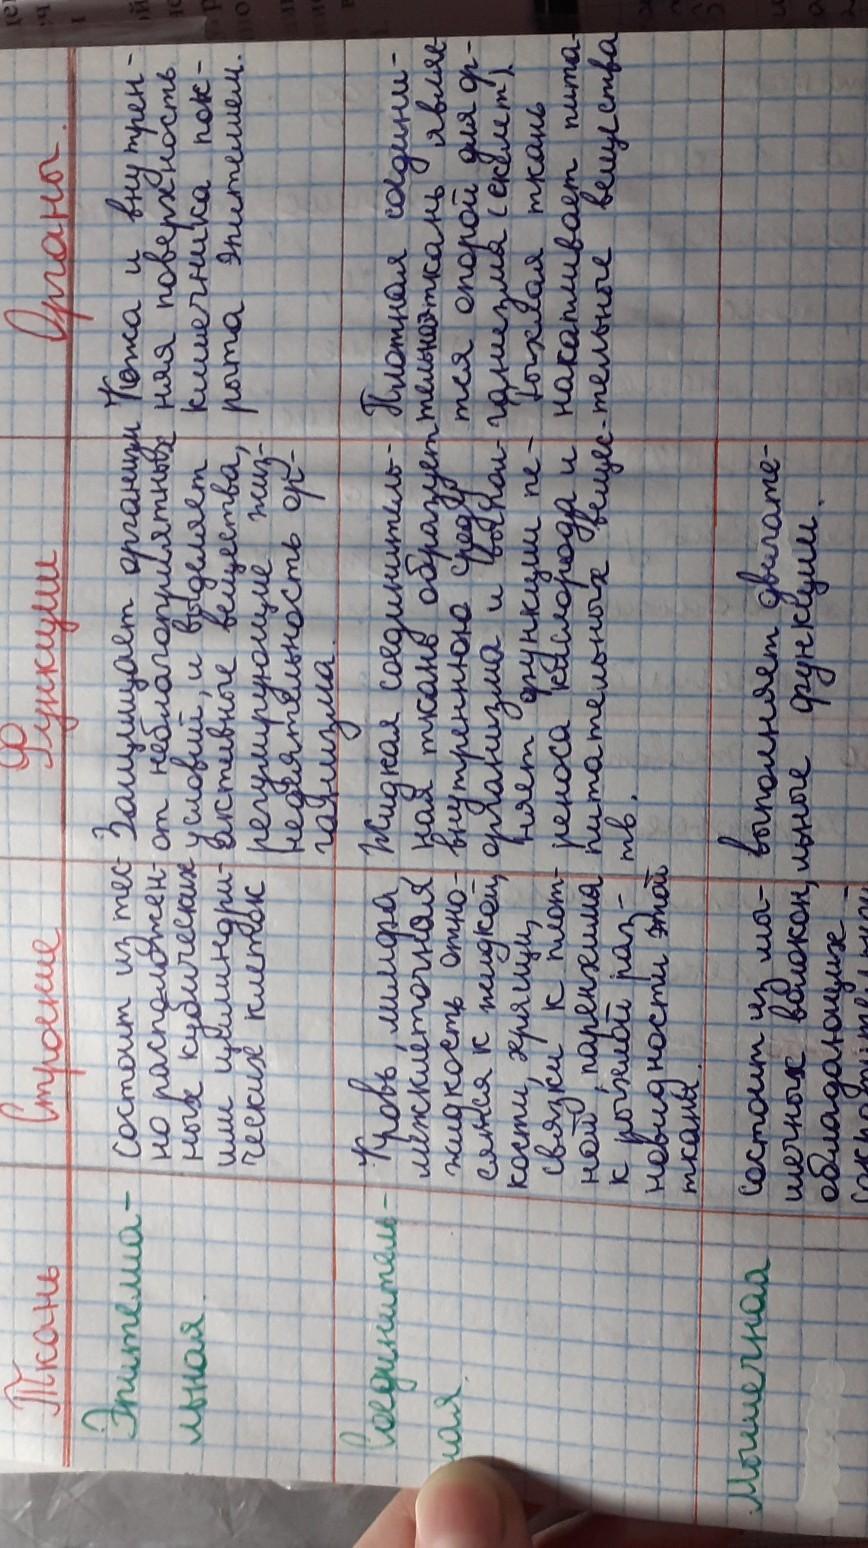 Ткань
Строение
Функции
Органы.
Эпителиа-
льная.
состоит из тес-
но расположен-
ных кубических
или цилиндри-
ческих клеток
Защищает организм
от неблагоприятных
условий, и выделяет
активные вещества,
регулирующие жиз-
недеятельность ор-
ганизма.
Кожа и внутрен-
няя поверхность
кишечника пок-
рыта эпителием.
Соединитель-
ная.
Кровь, лимфа,
межклеточная
жидкость отно-
сятся к жидкой,
кости, хрящи,
связки к плот-
ной, паренхима
к рыхлой раз-
новидности этой
ткани.
Жидкая соединитель-
ная ткань образует
внутреннюю среду
организма и выпол-
няет функции пе-
реноса кислорода и
питательных вещес-
тв.
Плотная соедини-
тельная ткань являе
тся опорой для ор-
ганизма (скелет)
Рыхлая ткань
накапливает пита-
тельные вещества
Мышечная
состоит из мы-
шечных волокон,
обладающих
выполняет двигате-
льные функции.